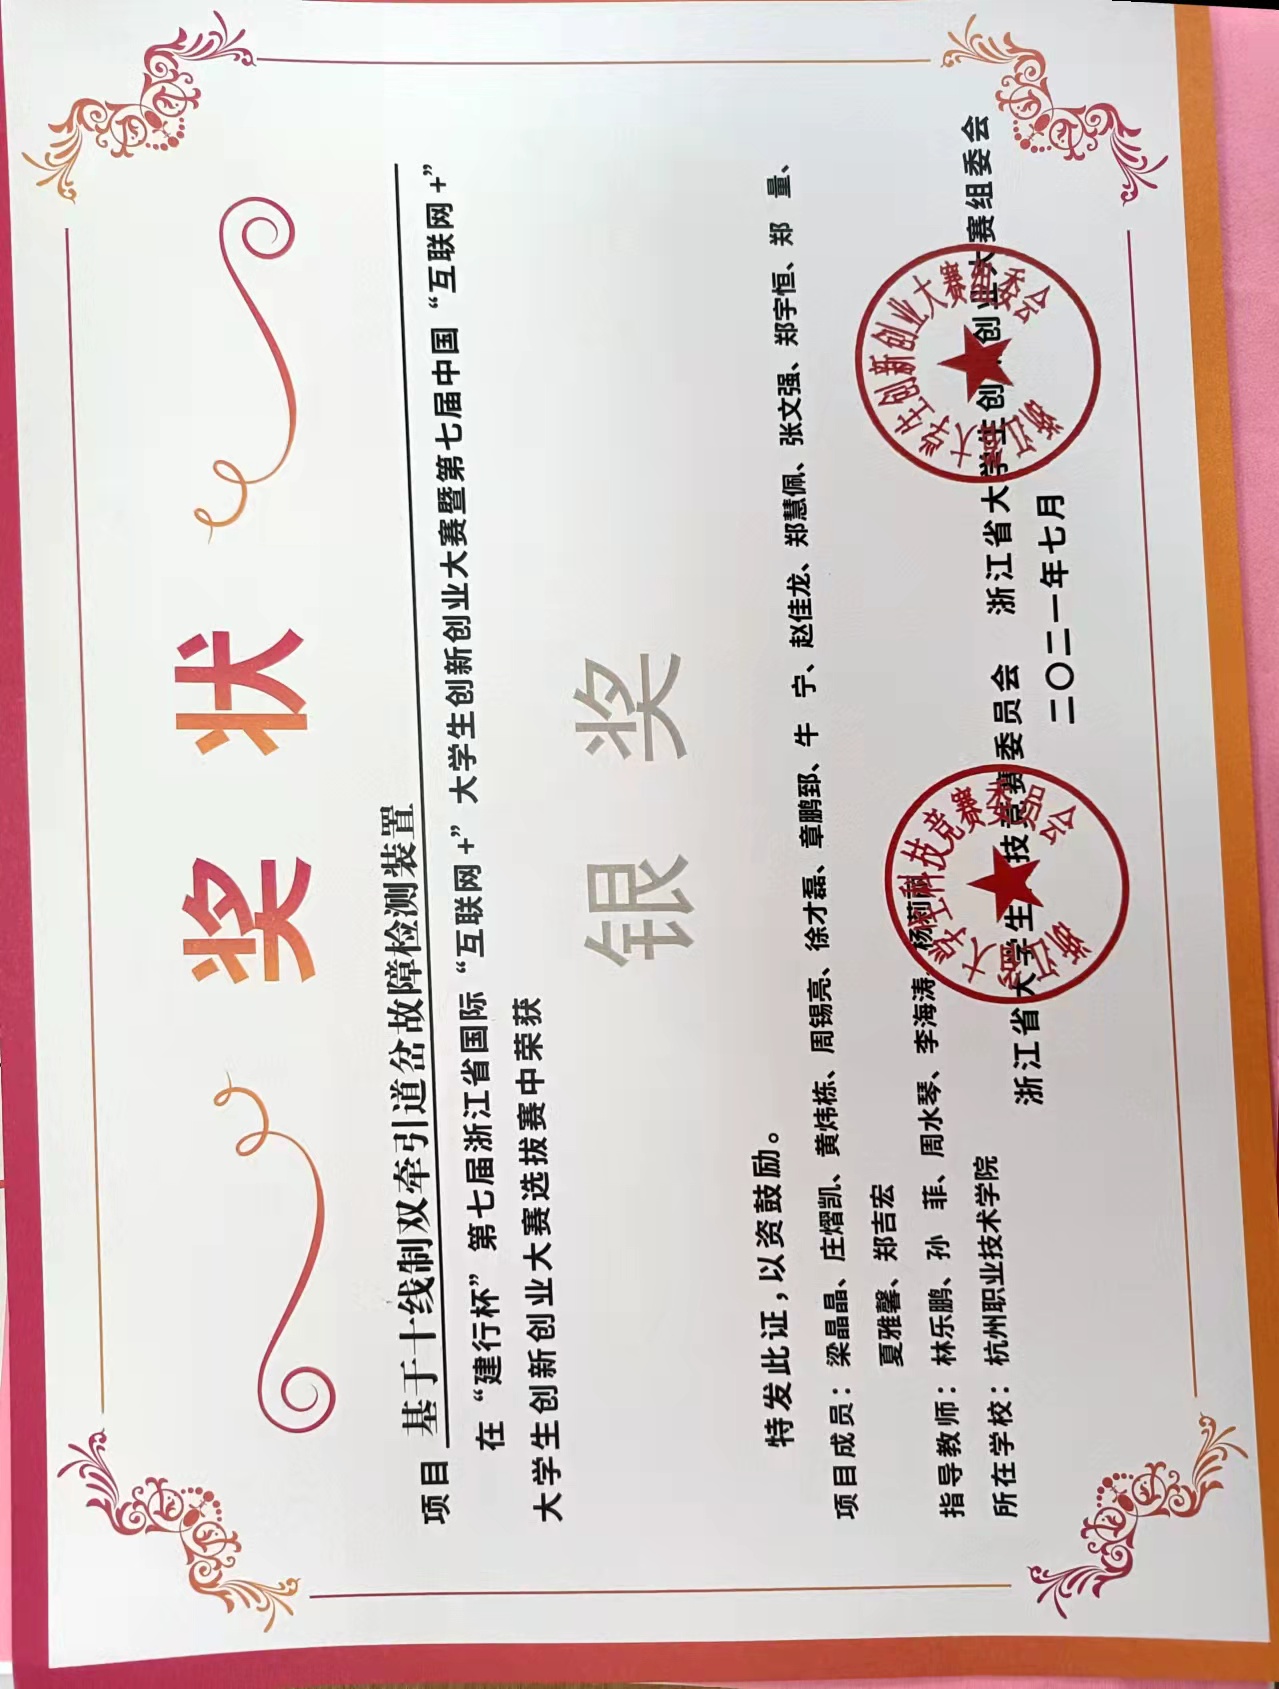 奖状
项目 基于十线制双牵引道岔故障检测装置
在“建行杯”第七届浙江省国际“互联网+”大学生创新创业大赛暨第七届中国“互联网+”
大学生创新创业大赛选拔赛中荣获
银奖
特发此证，以资鼓励。
项目成员：梁晶晶、庄熠凯、黄炜栋、周锡亮、徐才磊、章鹏郅、牛 宁、赵佳龙、郑慧佩、张文强、郑宇恒、郑 量、
夏雅馨、郑吉宏
指导教师：林乐鹏、孙 菲、周水琴、李海涛、杨莉
所在学校：杭州职业技术学院
浙江省大学生科技竞赛委员会 浙江省大学生创新创业大赛组委会
二〇二一年七月
浙江省大学生科技竞赛委员会
浙江省大学生创新创业大赛组委会